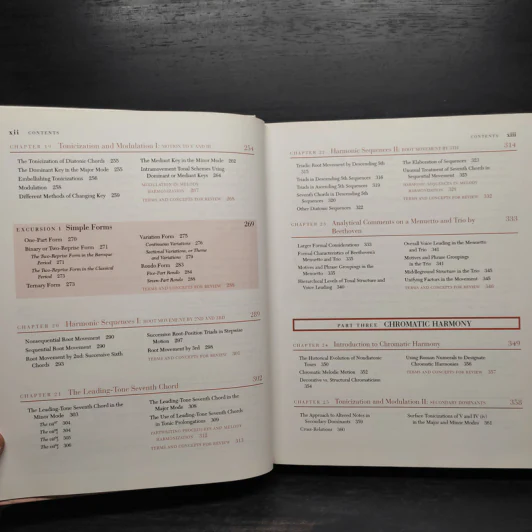 xii CONTENTS
CHAPTER Tonicization and Modulation I: 254
The Tonicization of Diatonic Chords 255
The Dominant Key in the Major Mode 255
Embellishing Tonicizations 256
Modulation 256
Different Methods of Changing Key 259
The Mediant Key in the Minor Mode 262
Intramovement Tonal Schemes Using
Dominant or Mediant Keys 264
TERMS AND CONCEPTS FOR REVIEW
EXCURSION 1 Simple Forms 269
One-Part Form 270
Binary or Two-Reprise Form 271
The Two-Reprise Form in the Baroque
Period 271
The Two-Reprise Form in the Classical
Period 273
Ternary Form 275
Variation Form 275
Continuous Variations
Sectional Variations, or Theme
and Variations
Rondo Form
Five-Part Rondo
Seven-Part Rondo
TERMS AND CONCEPTS FOR REVIEW
CHAPTER 20 Harmonic Sequences I: ROOT MOVEMENT BY 2ND AND 3RD 289
Nonsequential Root Movement 290
Sequential Root Movement 290
Root Movement by 2nd: Successive Sixth
Chords
Successive Root-Position Triads in Stepwise
Motion 297
Root Movement by 3rd 298
TERMS AND CONCEPTS FOR REVIEW
CHAPTER 21 The Leading-Tone Seventh Chord 302
The Leading-Tone Seventh Chord in the
Minor Mode 303
The
The
The
The
The Leading-Tone Seventh Chord in the
Major Mode
The Use of Leading-Tone Seventh Chords
in Tonic Prolongations
TERMS AND CONCEPTS FOR REVIEW 313
CONTENTS xiii
CHAPTER 22 Harmonic Sequences II: ROOT MOVEMENT BY 5TH 314
Triadic Root Movement by Descending 5th
315
Triads in Descending 5th Sequence
Triads in Ascending 5th Sequence
Seventh Chords in Descending 5th
Sequence
Other Diatonic Sequences 322
The Elaboration of Sequences 323
Unusual Treatment of Seventh Chords in
Sequential Movement 325
TERMS AND CONCEPTS FOR REVIEW
CHAPTER 23 Analytical Comments on a Menuetto and Trio by 333
Beethoven
Larger Formal Considerations 333
Formal Characteristics of Beethoven's
Menuetto and Trio 335
Motives and Phrase Groupings in the
Menuetto
Hierarchical Levels of Tonal Structure and
Voice Leading 340
Overall Voice Leading in the Menuetto
and Trio 341
Motives and Phrase Groupings
in the Trio
Middleground Structure in the Trio
Unifying Factors in the Menuetto
TERMS AND CONCEPTS FOR REVIEW
PART THREE CHROMATIC HARMONY
CHAPTER 24 Introduction to Chromatic Harmony 349
The Historical Evolution of Nondiatonic
Tones 350
Chromatic Melodic Motion 352
Decorative vs. Structural Chromaticism
354
Using Roman Numerals to Designate
Chromatic Harmonies 356
TERMS AND CONCEPTS FOR REVIEW 357
CHAPTER 25 Tonicization and Modulation II: SECONDARY DOMINANTS 358
The Approach to Altered Notes in
Secondary Dominants 359
Cross-Relations 360
Surface Tonicizations of V and IV (iv)
in the Major and Minor Modes 361